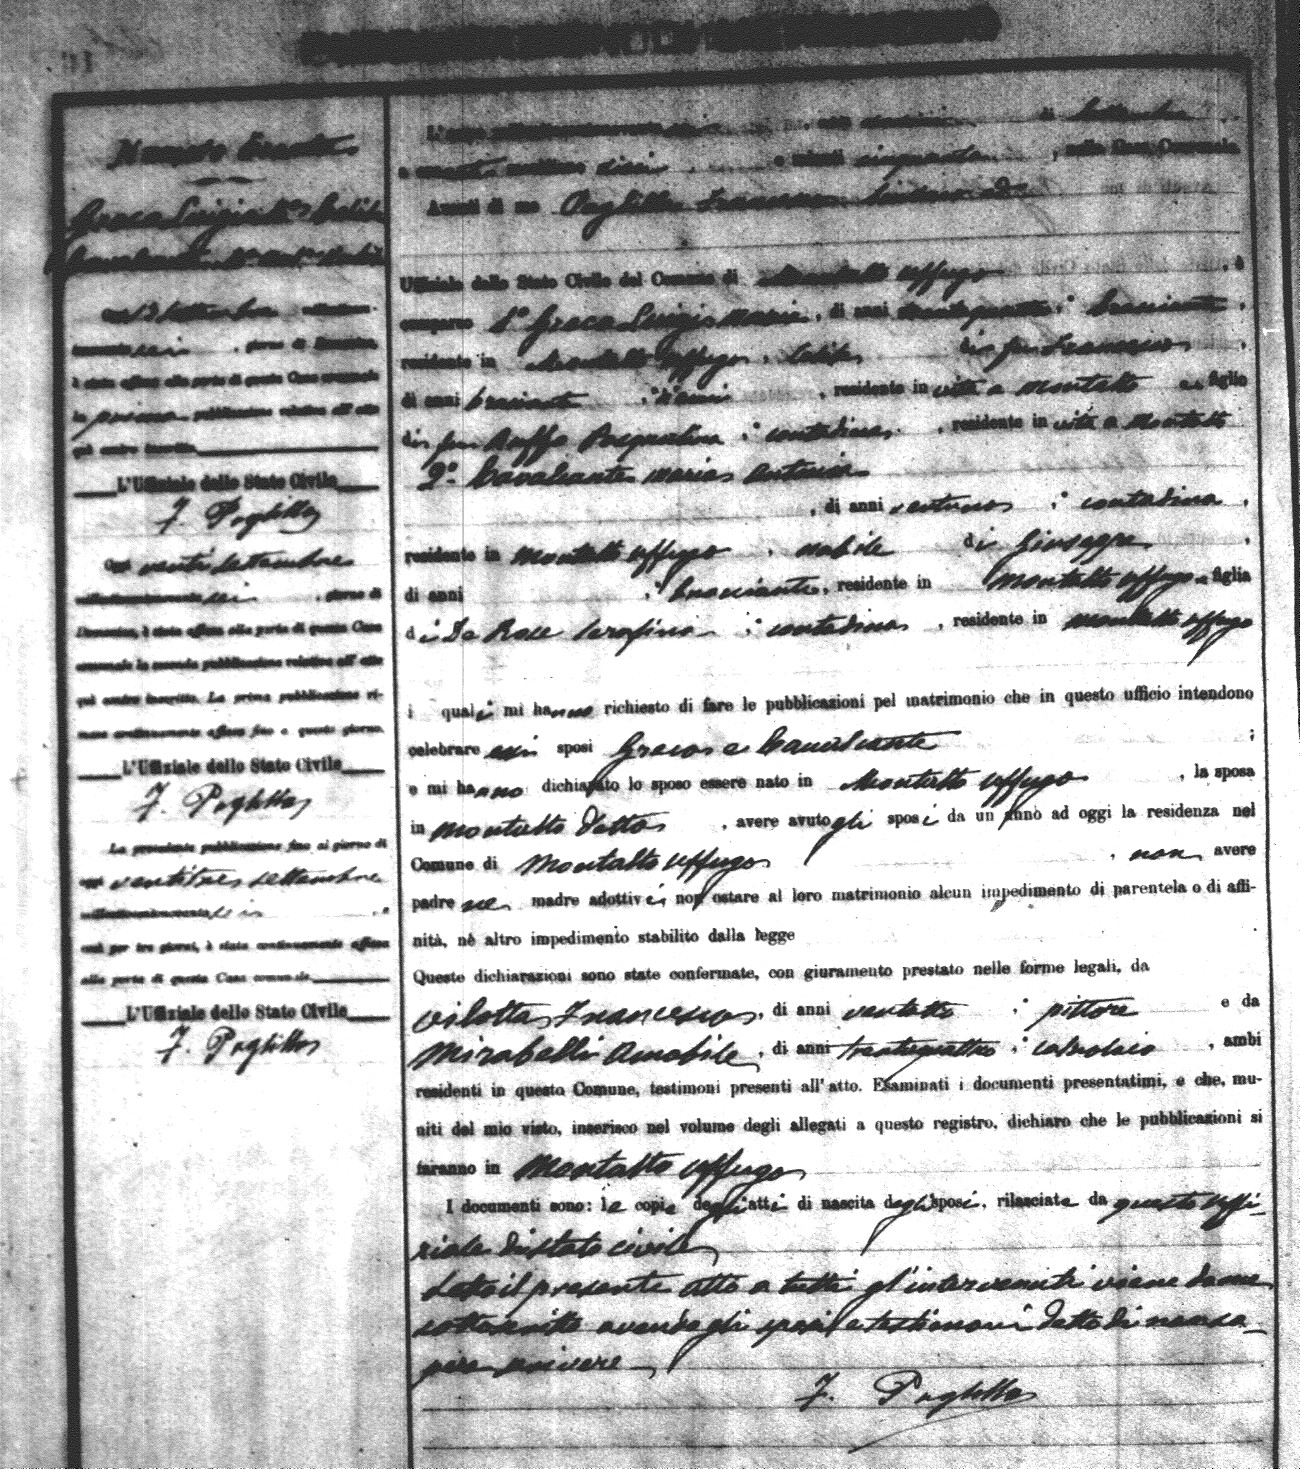 Numero Trenta
Greco Luigi M.ª Celibe
Cavalcante M.ª Ant.ª Nubile
Oggi 13 Settembre millenove-
centosei, giorno di Domenica,
è stata affissa alla porta di questa Casa comunale
la prima pubblicazione relativa all'atto
qui contro inscritto
L'Uffiziale dello Stato Civile
F. Puglilla
Oggi venti Settembre
sei, giorno di
Domenica, è stata affissa alla porta di questa Casa
comunale la seconda pubblicazione relativa all'atto
qui contro inscritto. La prima pubblicazione ri-
mase continuamente affissa fino a questo giorno.
L'Uffiziale dello Stato Civile
F. Puglilla
La precedente pubblicazione fino al giorno di
oggi ventitre settembre
sei, e
così per tre giorni, è stata continuamente affissa
alla porta di questa Casa comunale
L'Uffiziale dello Stato Civile
F. Puglilla
L'anno, addì di Settembre
a ore antimeridiane dieci e minuti cinquanta, nella Casa Comunale
Avanti di me Puglilla Francesco Sindaco ed
Uffiziale dello Stato Civile del Comune di Montalto Uffugo, è
comparso 1° Greco Luigi Maria, di anni ventiquattro, bracciante,
residente in Montalto Uffugo, celibe di fu Francesco,
di anni bracciante, residente in vita a Montalto e figlio
di fu Ruffo Pasqualina, contadina, residente in vita a Montalto
2° Cavalcante Maria Antonia
, di anni ventuno, contadina,
residente in Montalto Uffugo, nubile di Giuseppe,
di anni, bracciante, residente in Montalto Uffugo e figlia
di De Rose Serafina, contadina, residente in Montalto Uffugo
i quali mi hanno richiesto di fare le pubblicazioni pel matrimonio che in questo ufficio intendono
celebrare essi sposi Greco e Cavalcante;
e mi hanno dichiarato lo sposo essere nato in Montalto Uffugo, la sposa
in Montalto detto, avere avuto gli sposi da un anno ad oggi la residenza nel
Comune di Montalto Uffugo, non avere
padre ne madre adottivi non ostare al loro matrimonio alcun impedimento di parentela o di affi-
nità, nè altro impedimento stabilito dalla legge
Queste dichiarazioni sono state confermate, con giuramento prestato nelle forme legali, da
Vilotta Francesco, di anni ventotto, pittore e da
Mirabelli Amabile, di anni trentaquattro, calzolaio, ambi
residenti in questo Comune, testimoni presenti all'atto. Esaminati i documenti presentatimi, e che, mu-
niti del mio visto, inserisco nel volume degli allegati a questo registro, dichiaro che le pubblicazioni si
faranno in Montalto Uffugo
I documenti sono: le copie degli atti di nascita degli sposi, rilasciate da questo uffi-
ziale di stato civile
Letto il presente atto a tutti gl'intervenuti viene da me
sottoscritto avendo gli sposi e testimoni detto di non sa-
pere scrivere
F. Puglilla